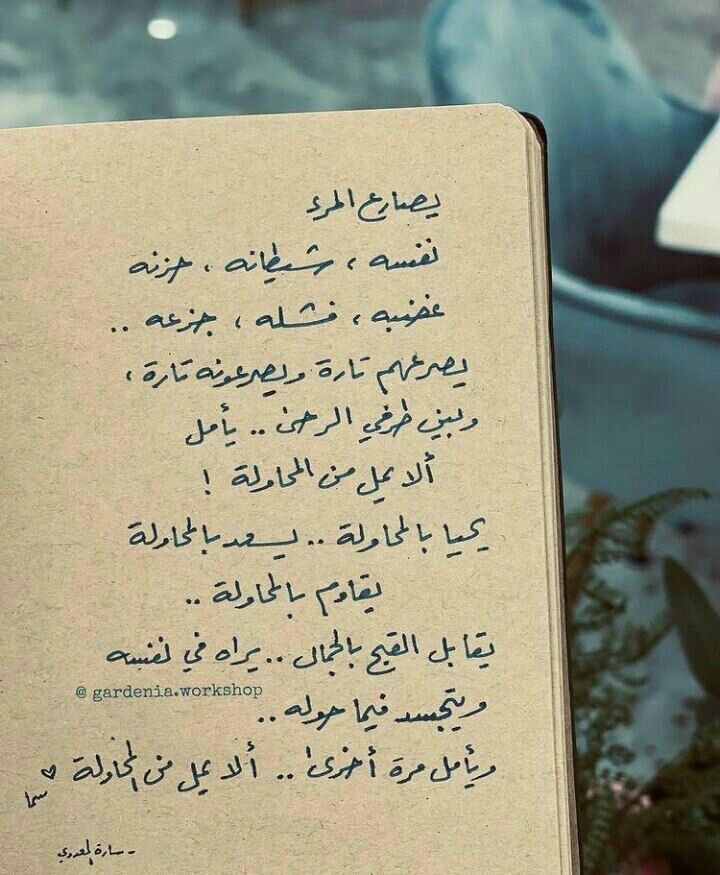 يصارع المرء
نفسه ، شيطانه ، حزنه
غضبه ، فشله ، جزعه ..
يصرعهم تارة ويصرعونه تارة ،
وبين طرفي الرحى .. يأمل
ألا يمل من المحاولة !
يحيا بالمحاولة .. يسعد بالمحاولة
يقاوم بالمحاولة ..
يقابل القبح بالجمال .. يراه في نفسه
@ gardenia.workshop
ويتجسد فيما حوله ..
ويأمل مرة أخرى .. ألا يمل من المحاولة
سما
- سارة